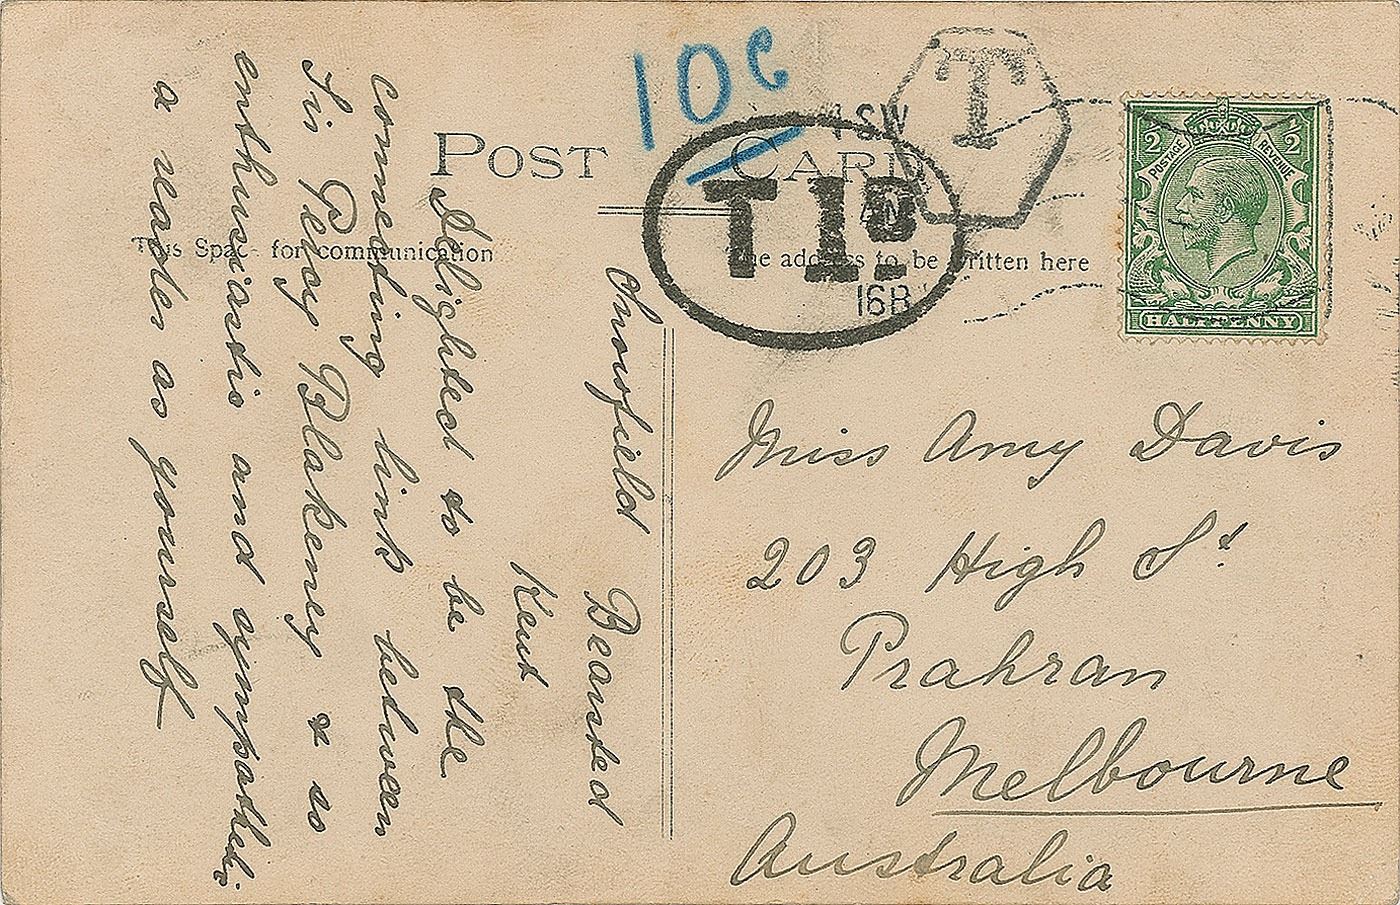 POST CARD
This Space for communication
The address to be written here
10c
T
T 1D.
½ ½
POSTAGE REVENUE
HALFPENNY
Snowfield
Bearsted
Kent
Delighted to be the
connecting link between
Sir Percy Blakeney & so
enthusiastic and sympathetic
a reader as yourself
Miss Amy Davis
203 High St
Prahran
Melbourne
Australia